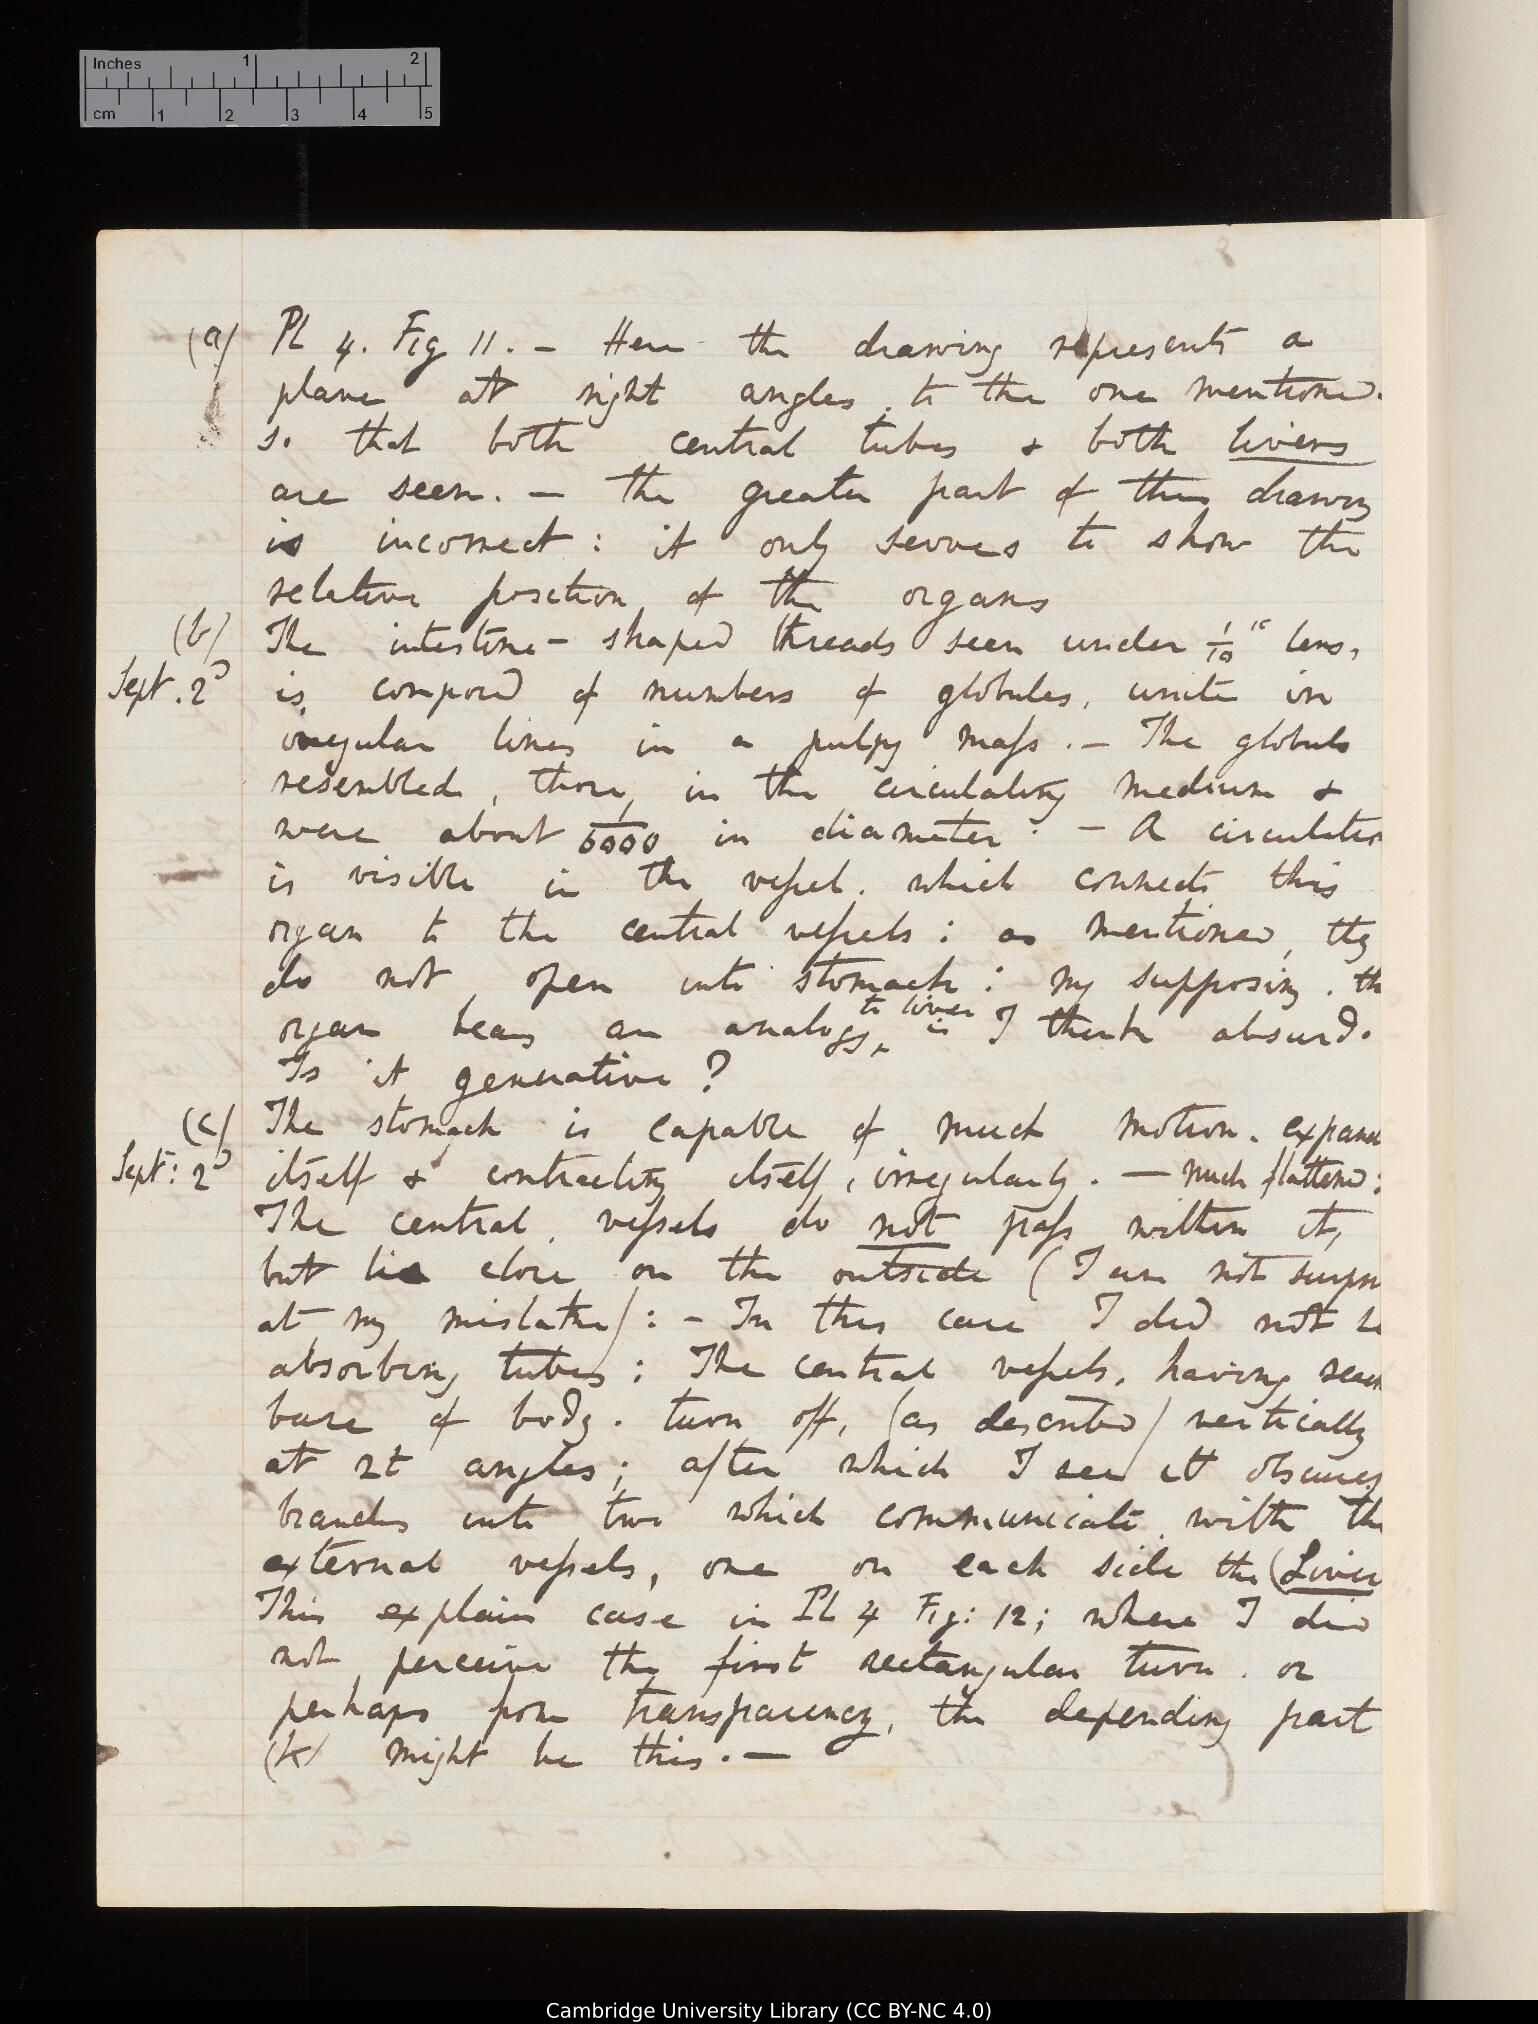 Inches 1 2
cm 1 2 3 4 5
(a) Pl 4. Fig 11. – Here the drawing represents a
plane at right angles to the one mentioned.
so that both central tubes & both livers
are seen. – the greater part of this drawing
is incorrect: it only serves to show the
relative position of the organs
(b) The intestine-shaped threads seen under 1/10" lens,
Sept. 2d is composed of numbers of globules, unite in
irregular lines in a pulpy mass. – The globule
resembled, those, in the circulating medium &
were about 1/6000 in diameter: – A circulation
is visible in the vessel. which connects this
organ to the central vessels: as mentioned, they
do not open into stomach: my supposing. th
to liver
organ bears an analogy, is I think absurd.
Is it generative?
(c) The stomach is capable of much motion. expand
Sept: 2d itself & contracting itself, irregularly. – much flattened:
The central vessels do not pass within it,
but lie close on the outside (I am not surpri
at my mistake): – In this case I did not se
absorbing tubes: The central vessels, having reach
base of body. turn off, (as described) vertically
at rt angles; after which I see it obscurely
branches into two which communicate with the
external vessels, one on each side the (Liver
This explain case in Pl 4 Fig: 12; where I did
not perceive the first rectangular turn. or
perhaps from transparency, the depending part
(K) might be this. –
Cambridge University Library (CC BY-NC 4.0)